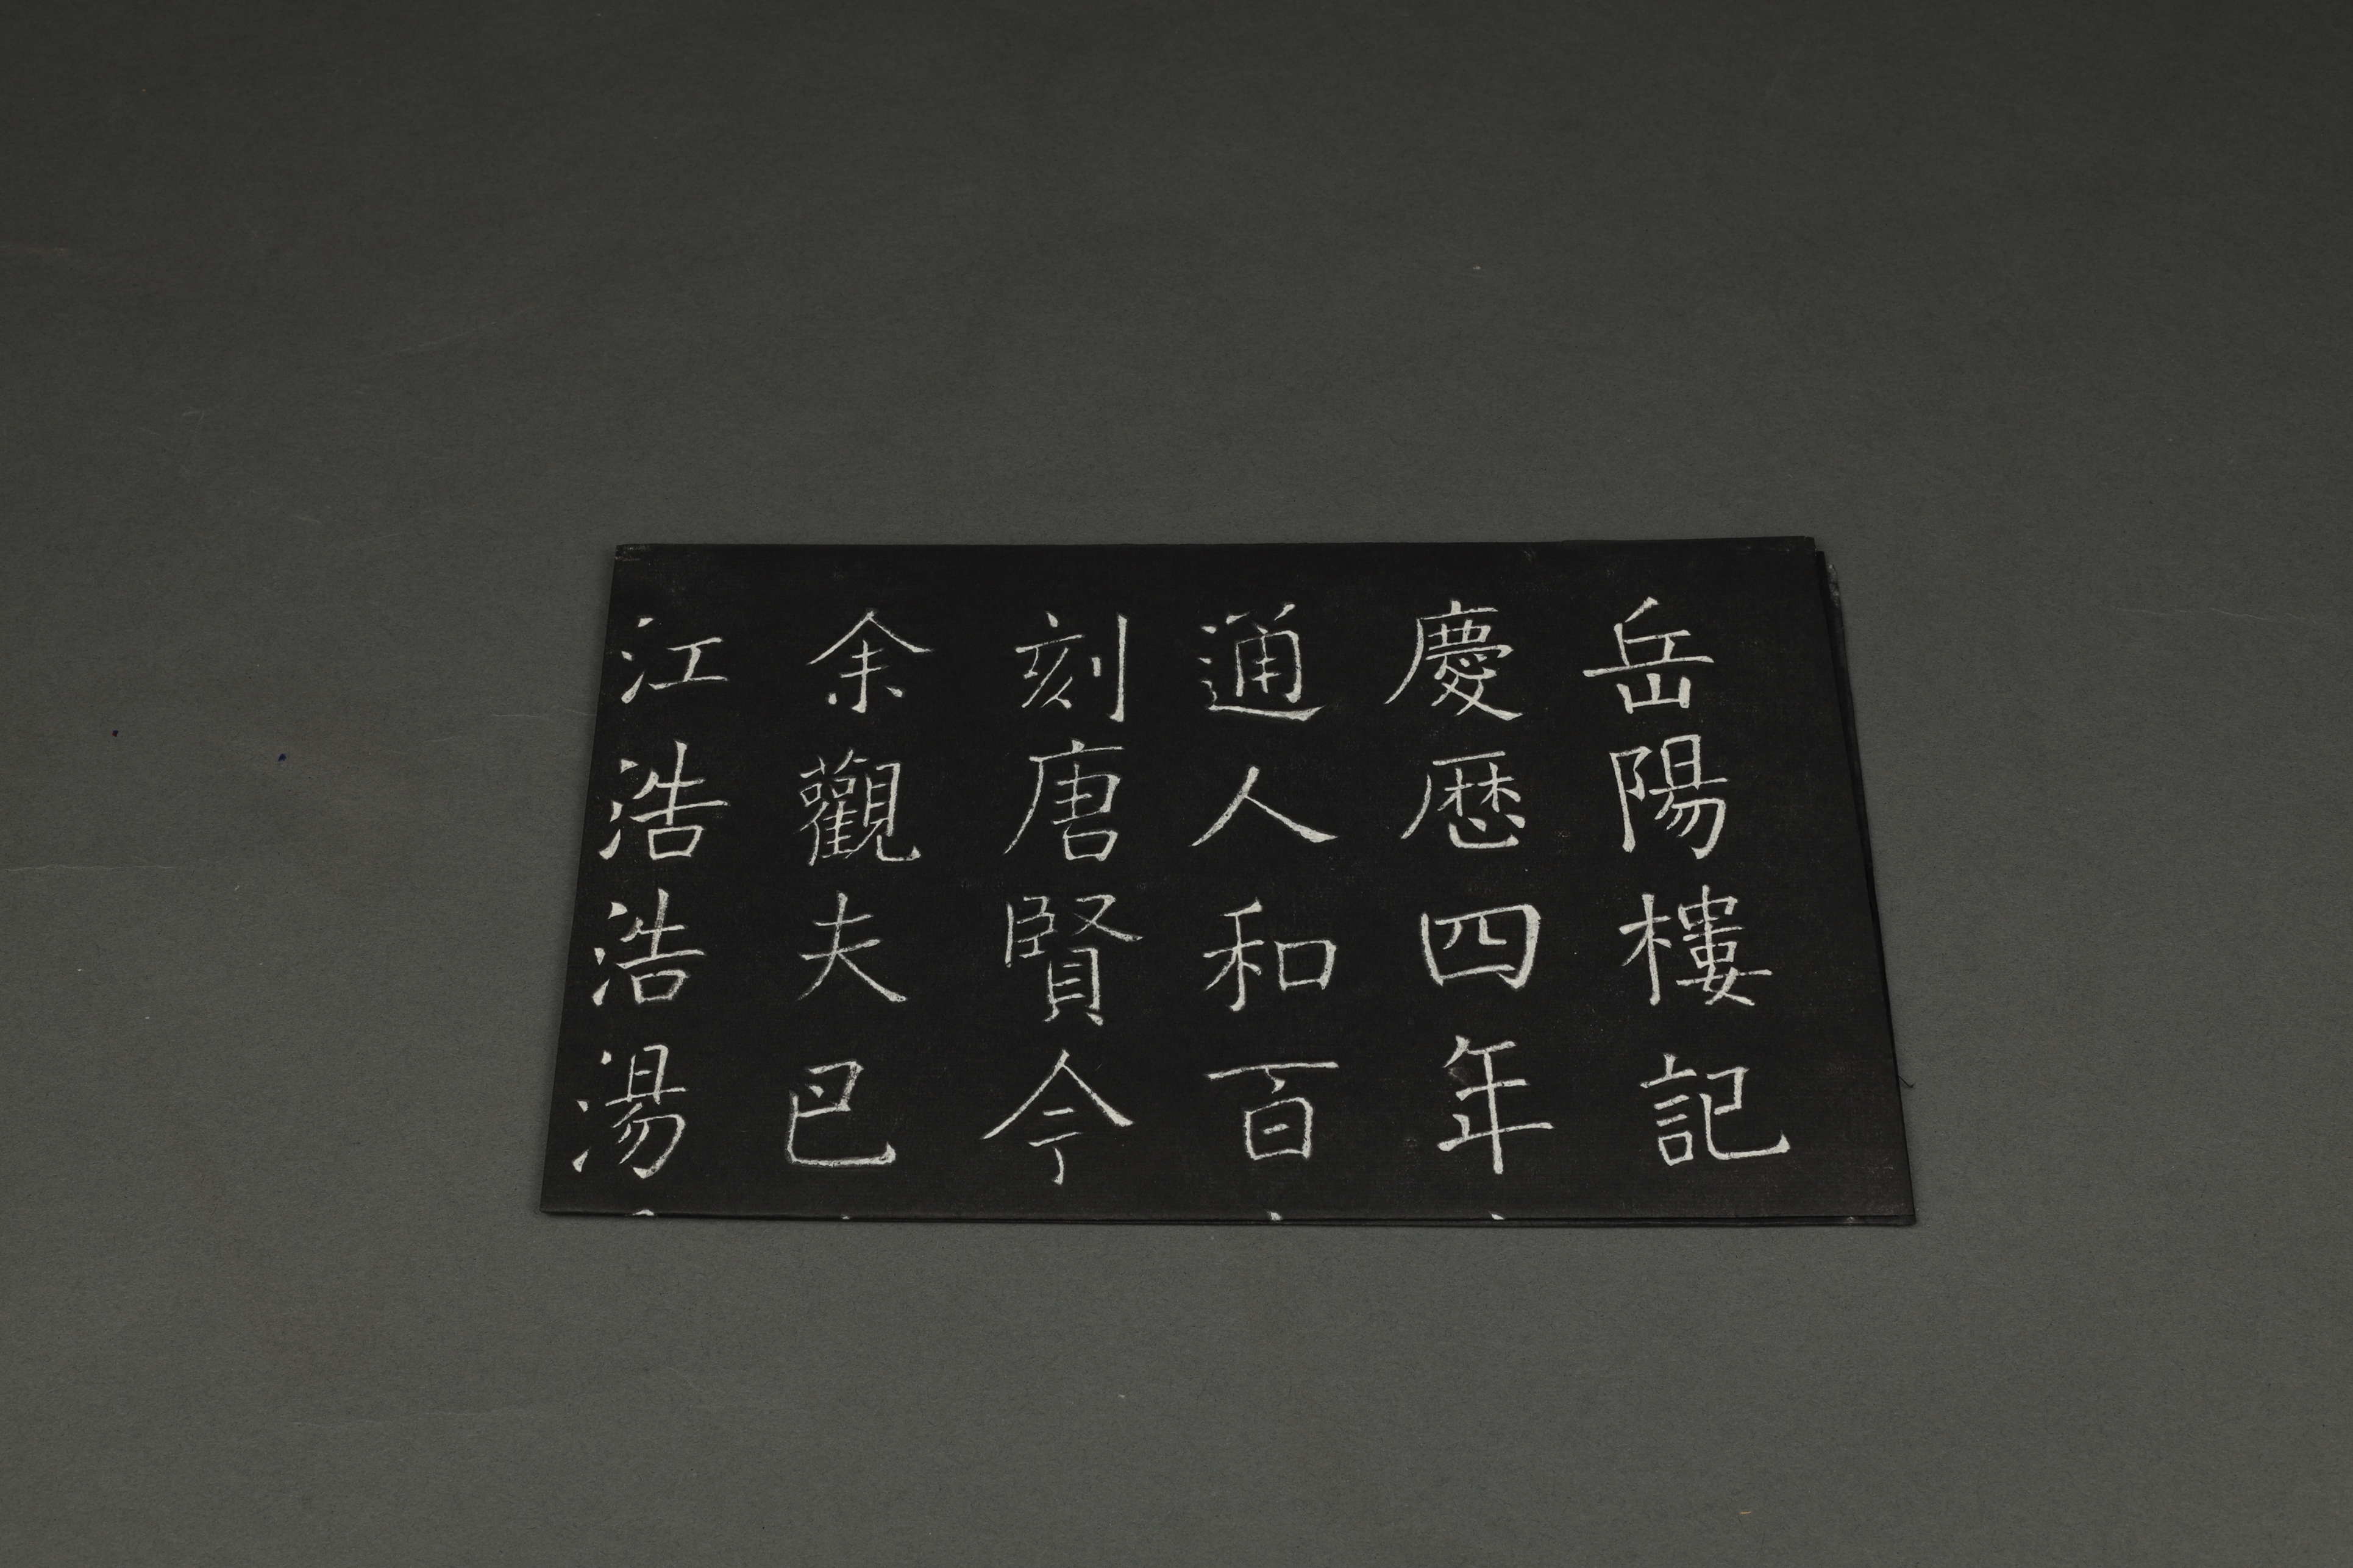 岳陽樓記
慶歴四年
通人和百
刻唐賢今
余觀夫巴
江浩浩湯